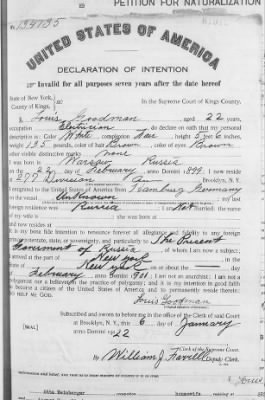 PETITION FOR NATURALIZATION
No. 134735
UNITED STATES OF AMERICA
DECLARATION OF INTENTION
Invalid for all purposes seven years after the date hereof
State of New York,
County of Kings,
In the Supreme Court of Kings County.
I, Louis Goodman, aged 22 years,
occupation Electrician, do declare on oath that my personal
description is: Color White, complexion Fair, height 5 feet 6 inches,
weight 135 pounds, color of hair Brown, color of eyes Brown
other visible distinctive marks None
I was born in Warsaw Russia
on the 22 day of February, anno Domini 1899; I now reside
at 277 Division Ave Brooklyn, N. Y.
I emigrated to the United States of America from Hamburg Germany
on the vessel Unknown; my last
foreign residence was Russia; I am Not married; the name
of my wife is; she was born at
and now resides at
It is my bona fide intention to renounce forever all allegiance and fidelity to any foreign
prince, potentate, state, or sovereignty, and particularly to The Present
Government of Russia, of whom I am now a subject;
I arrived at the port of New York, in the
State of New York, on or about the day
of February, anno Domini 1901; I am not an anarchist; I am not a
polygamist nor a believer in the practice of polygamy; and it is my intention in good faith
to become a citizen of the United States of America and to permanently reside therein:
SO HELP ME GOD.
Louis Goodman
Subscribed and sworn to before me in the office of the Clerk of said Court
at Brooklyn, N. Y., this 6 day of January
anno Domini 1922
[SEAL]
Clerk of the Supreme Court.
By William J. Farrell, Deputy Clerk.